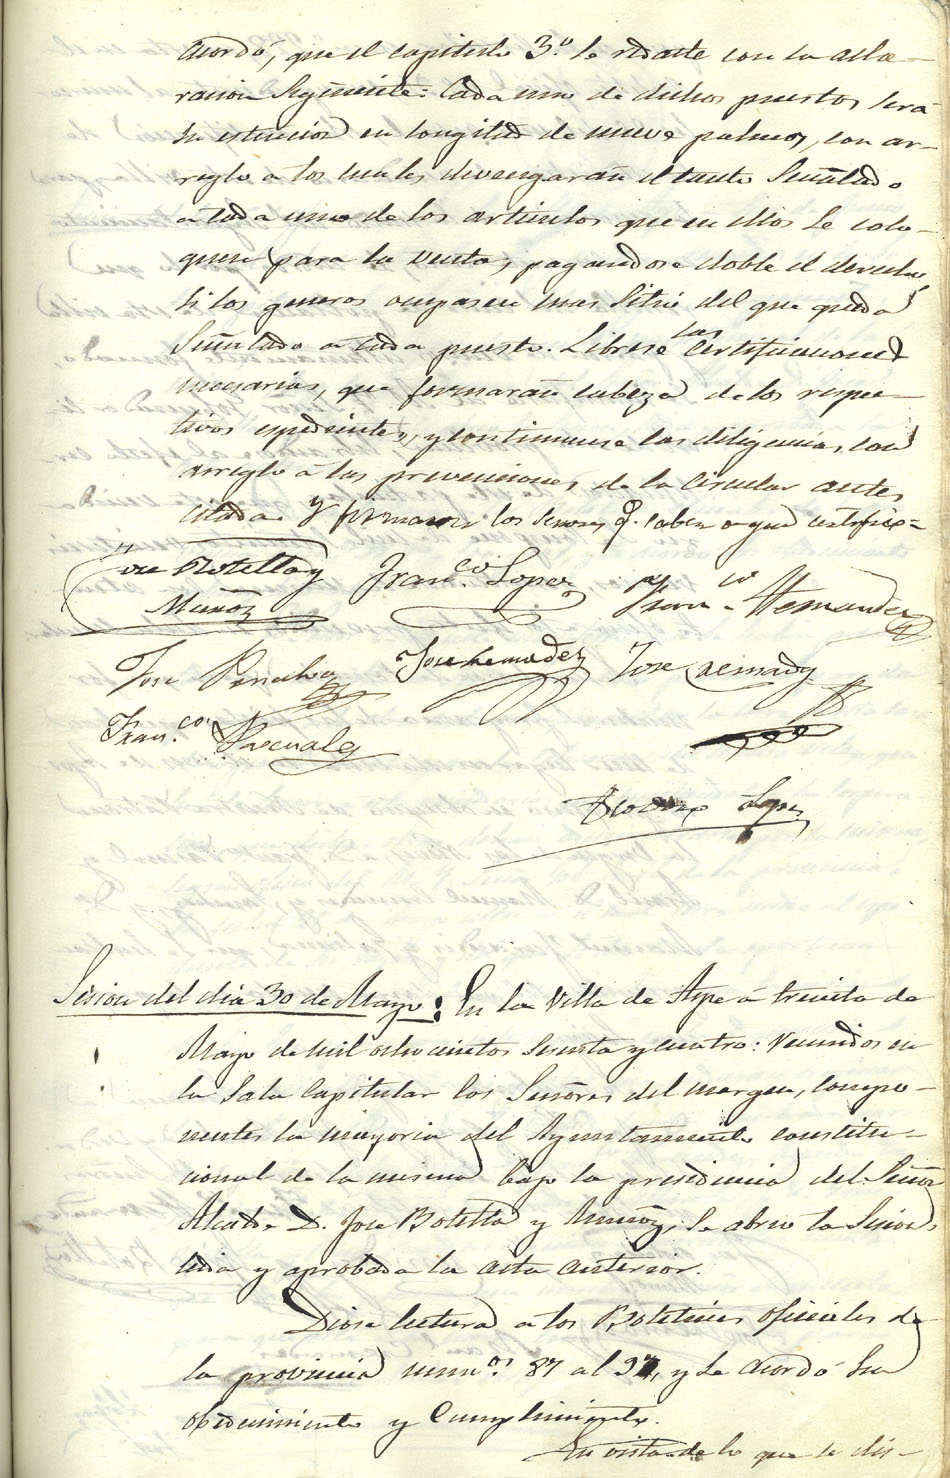 acordó, que el capitulo 3.º se redacte con la acla-
racion siguiente: Cada uno de dichos puestos será
su estencion en longitud de nueve palmos, con ar-
reglo a los cuales devengarán el tanto señalado
a cada uno de los articulos que en ellos se colo-
quen para la venta, pagandose doble el derecho
si los generos ocupasen mas sitio del que queda
señalado a cada puesto. Librese las certificaciones
necesarias, que formarán cabeza de los respec-
tivos espedientes, y continuense las diligencias, con
arreglo a las prevenciones de la circular antes
citada. Y firmaron los señores q.e saben de que certifico=
Jose Botella y
Muñoz
Fran.co Lopez
Fran.co Hernandez
Jose Penalva
Jose Hernadez
Jose
Fran.co Pascual
Lopez
Sesion del dia 30 de Mayo: En la Villa de Aspe á treinta de
Mayo de mil ochocientos sesenta y cuatro: reunidos en
la Sala Capitular los Señores del margen, compo-
nentes la mayoria del Ayuntamiento constitu-
cional de la misma bajo la presidencia del Señor
Alcalde D. Jose Botella y Muñoz, se abrio la sesion,
leida y aprobada la acta anterior.
Diose lectura a los Boletines oficiales de
la provincia num.os 87 al , y se acordó su
obedecimiento y cumplimiento.
En vista de lo que se dis-